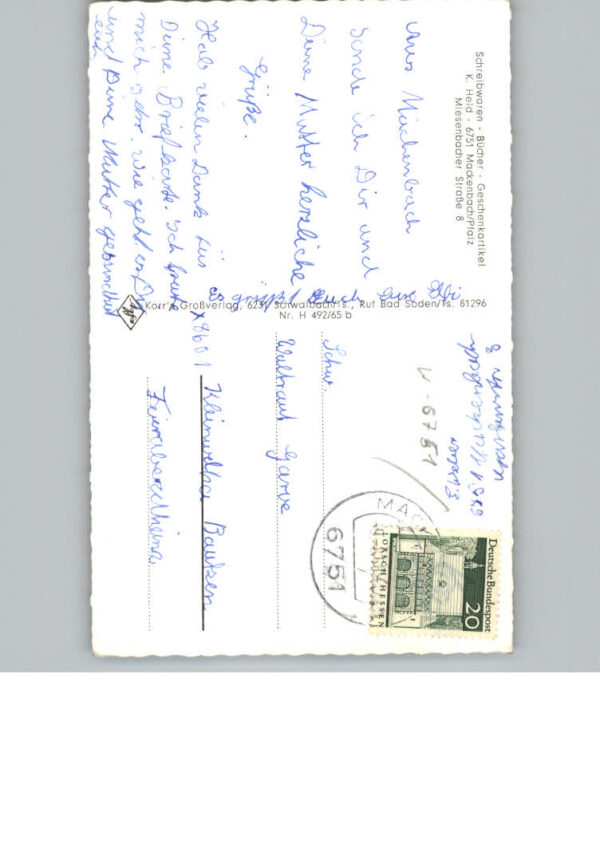 Schreibwaren - Bücher - Geschenkartikel
K. Heid - 6751 Mackenbach/Pfalz
Miesenbacher Straße 8
Aus Mackenbach
sende ich Dir und
Deine Mutter herzliche
Grüße.
Hab vielen Dank für
Deine Briefkarte. Ich freute
mich sehr. Wie geht es Dir
und Deine Mutter gesundheit
es grüßt Euch Eure
Agfa
Korr's Großverlag, 6231 Schwalbach/Ts., Ruf Bad Soden/Ts. 81296
Nr. H 492/65 b
Absender
6751
W-6751
Deutsche Bundespost
20
LORSCH/HESSEN
MAC
6751
Schw.
Waltraut Garve
X8601 Kleinwelka Bautzen
Feierabendheim